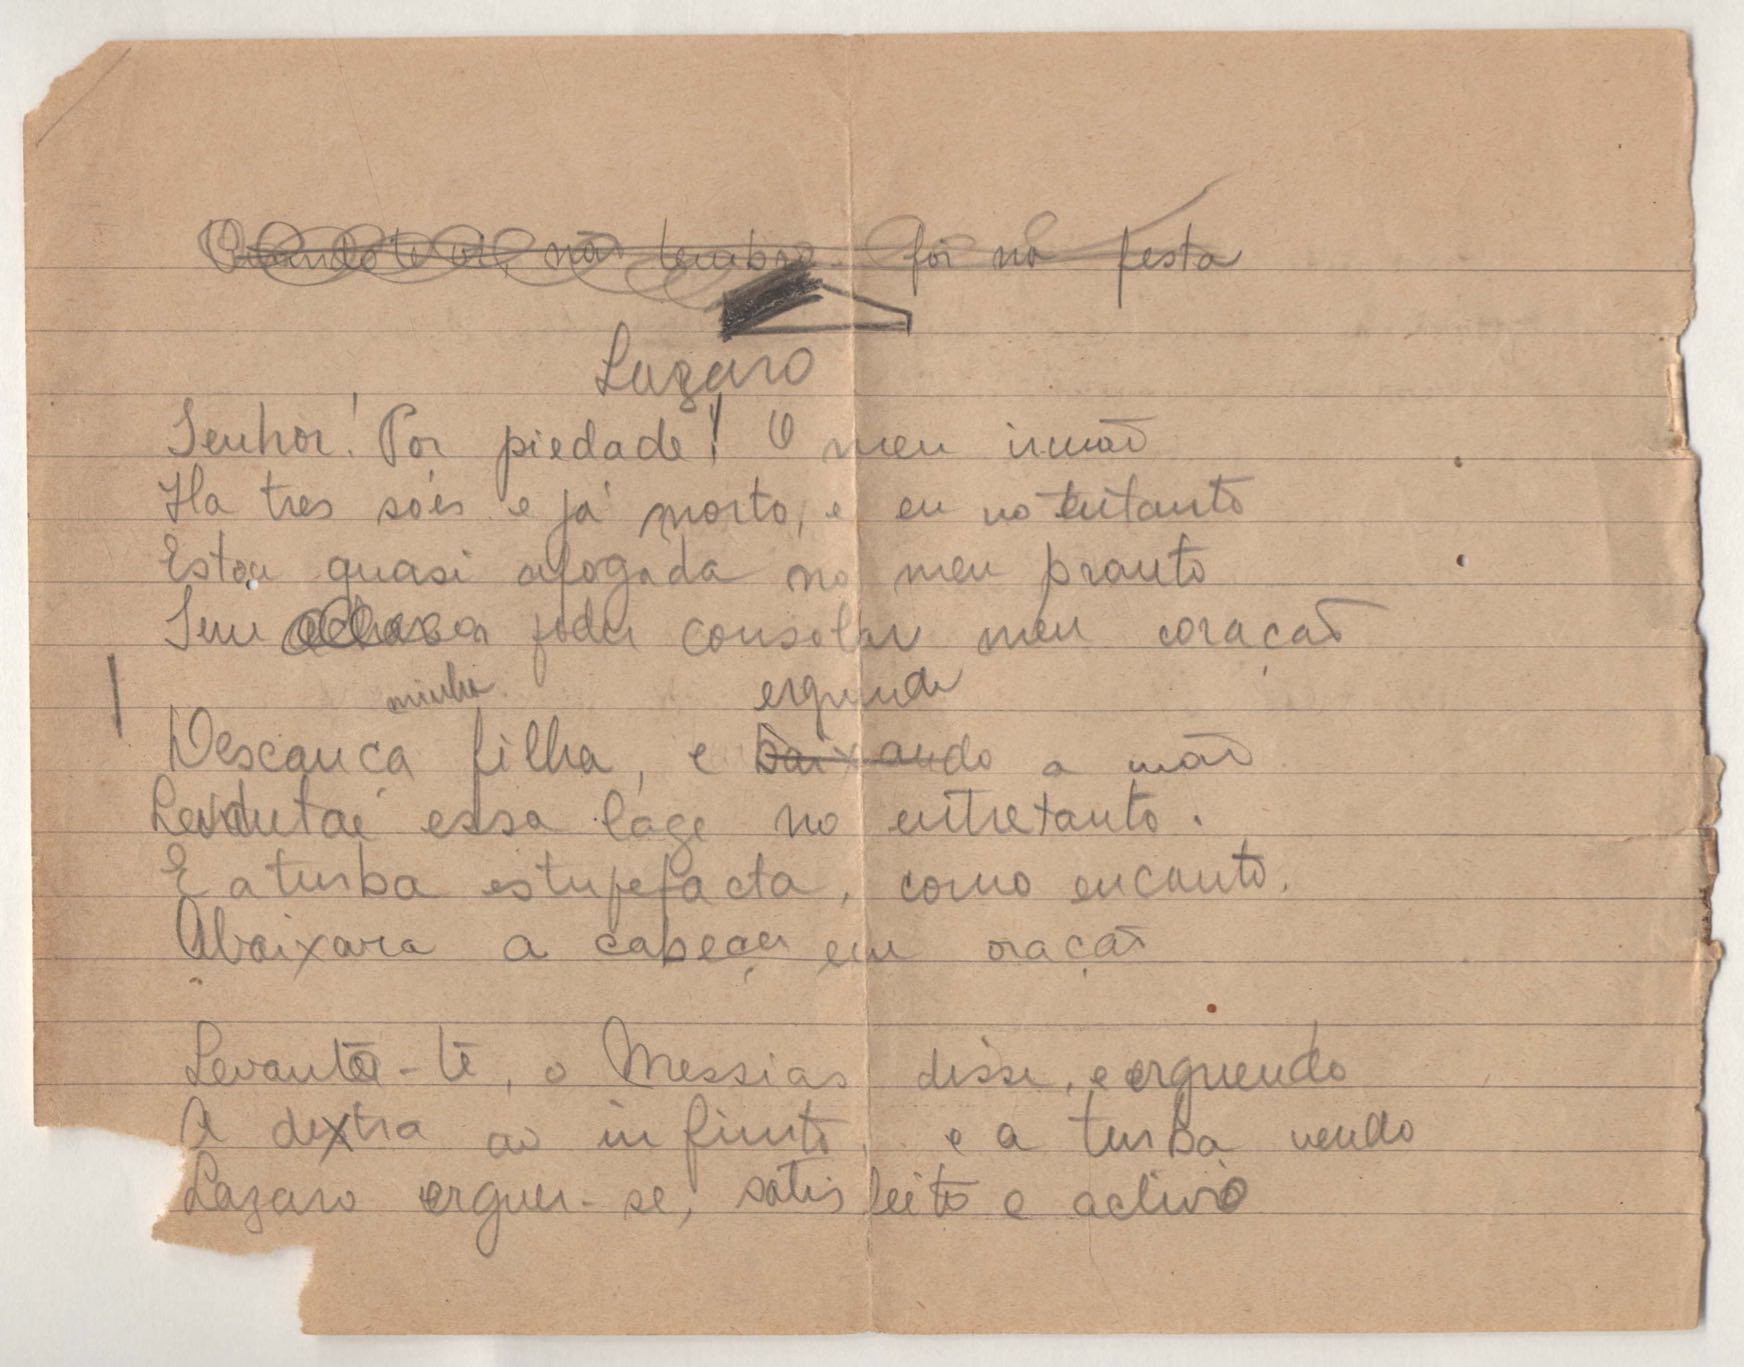 Quando te vi, não lembro foi na festa
Lazaro
Senhor! Por piedade! O meu irmão
Ha tres sóes e já morto, e eu no entanto
Estou quasi afogada no meu pranto
Sem poder consolar meu coração
minha erguendo
Descança filha, e baixando a mão
Levantae essa lage no entretanto.
E a turba estupefacta, como encanto,
Abaixara a cabeça em oração
Levanta-te, o Messias disse, e erguendo
A dextra ao infinito, e a turba vendo
Lazaro erguer-se, satisfeito e activo